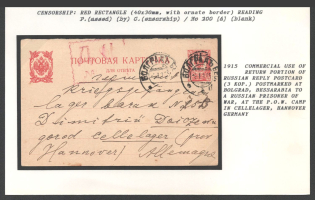 CENSORSHIP: RED RECTANGLE (60x30mm, with ornate border) READING
P.(assed) (by) G.(ensorship) / No 200 (&) (blank)
ПОЧТОВАЯ КАРТОЧКА
ДЛЯ ОТВЕТА
Kriegsgefangenen
lager
Dimitriu
gorod cellelager
Hannover Allemagne
1915 COMMERCIAL USE OF
RETURN PORTION OF
RUSSIAN REPLY POSTCARD
(3 KOP.) POSTMARKED AT
BOLGRAD, BESSARABIA TO
A RUSSIAN PRISONER OF
WAR, AT THE P.O.W. CAMP
IN CELLELAGER, HANNOVER
GERMANY